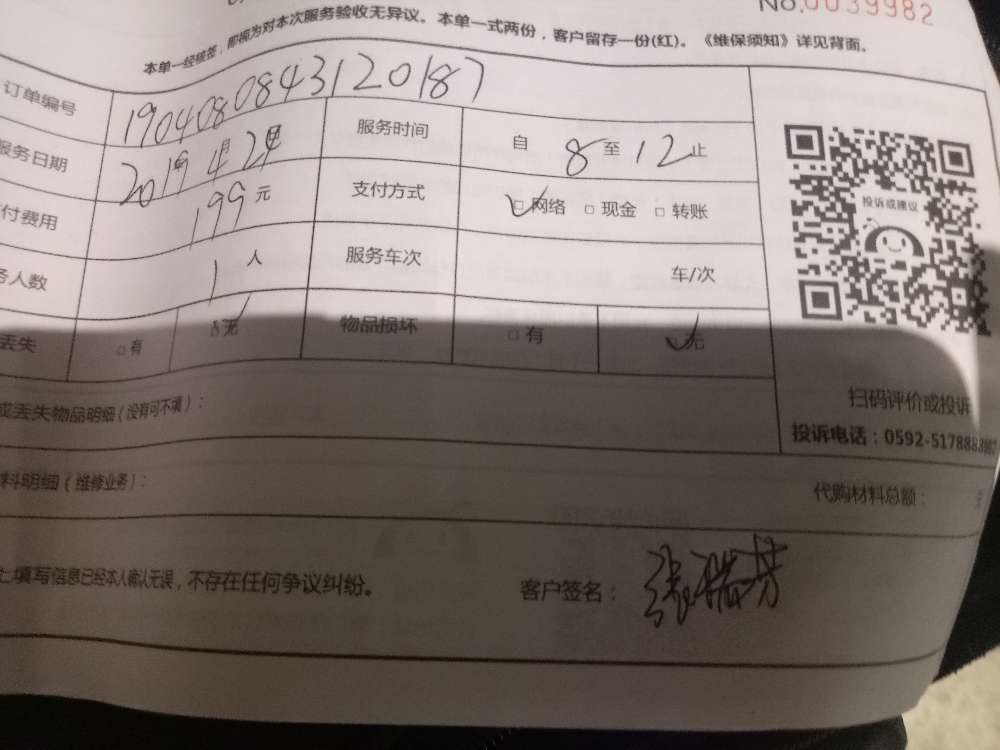 No.0039982
本单一经核签，即视为对本次服务验收无异议。本单一式两份，客户留存一份(红)。《维保须知》详见背面。
订单编号 190408084312０187
服务日期 2019 4月 24日 服务时间 自 8 至 12 止
付费用 199 元 支付方式 ☑网络 □现金 □转账
务人数 1 人 服务车次 车/次
丢失 □有 ☑无 物品损坏 □有 ☑无
投诉或建议
扫码评价或投诉
投诉电话：0592-5178883
或丢失物品明细（没有可不填）：
料明细（维修业务）： 代购材料总额：
上填写信息已经本人确认无误，不存在任何争议纠纷。 客户签名： 张瑞芳